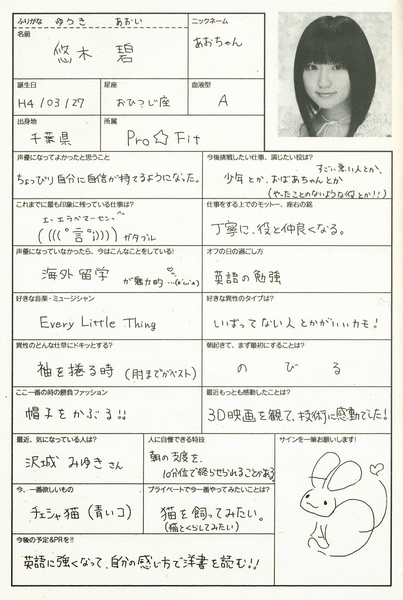 ふりがな ゆうき あおい
名前
悠木 碧
ニックネーム
あおちゃん
誕生日
H4/03/27
星座
おひつじ座
血液型
A
出身地
千葉県
所属
Pro☆Fit
声優になってよかったと思うこと
ちょっぴり自分に自信が持てるようになった。
今後挑戦したい仕事、演じたい役は?
すごい悪い人とか、
少年とか、おばあちゃんとか
(やったことのないような役とか!!)
これまでに最も印象に残っている仕事は?
(((( ;゜言゜;)))) ガタブル
仕事をする上でのモットー、座右の銘
丁寧に、役と仲良くなる。
声優になっていなかったら、今はこんなことをしている!
海外留学 が魅力的…(・ω・)
オフの日の過ごし方
英語の勉強
好きな音楽・ミュージシャン
Every Little Thing
好きな異性のタイプは?
いばってない人とかがいいカモ!
異性のどんな仕草にドキッとする?
袖を捲る時 (肘までがベスト)
朝起きて、まず最初にすることは?
のびる
ここ一番の時の勝負ファッション
帽子をかぶる!!
最近もっとも感動したことは?
3D映画を観て、技術に感動でした!
最近、気になっている人は?
沢城 みゆきさん
人に自慢できる特技
朝の支度を、
10分位で終らせられることがある
サインを一筆お願いします!
今、一番欲しいもの
チェシャ猫(青いコ)
プライベートで今一番やってみたいことは?
猫を飼ってみたい。
(猫とくらしてみたい)
今後の予定&PRを!!
英語に強くなって、自分の感じ方で洋書を読む!!